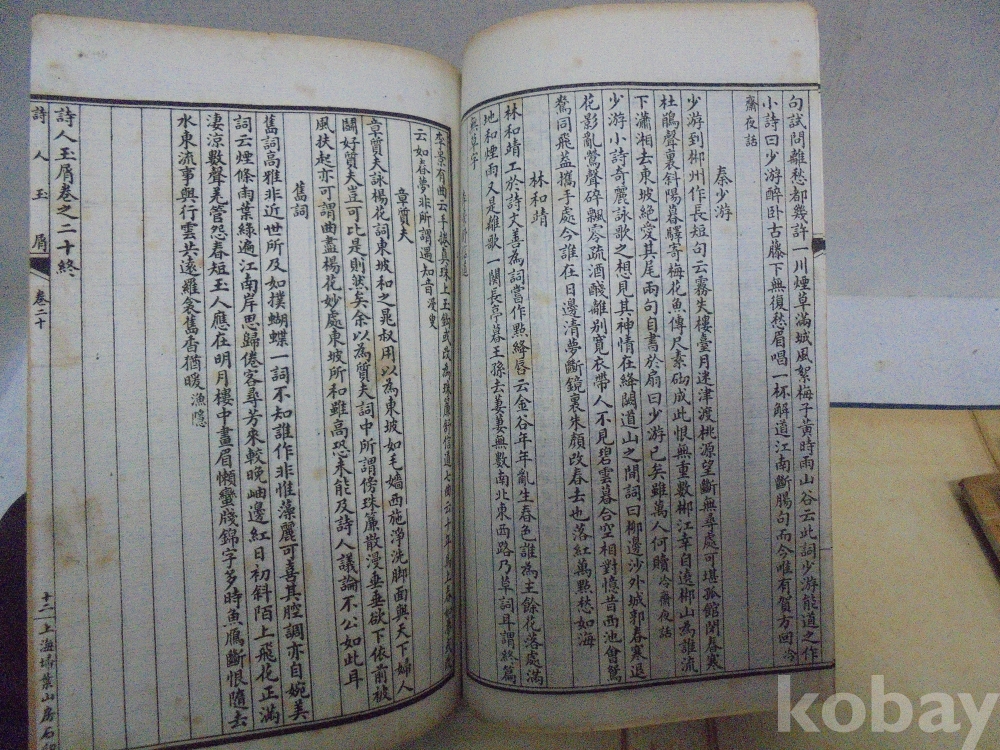 句試問離愁都幾許一川煙草滿城風絮梅子黃時雨山谷云此詞少游能道之作
小詩曰少游醉卧古藤下無復愁眉唱一杯解道江南斷腸句而今唯有賀方回冷
齋夜話
秦少游
少游到郴州作長短句云霧失樓臺月迷津渡桃源望斷無尋處可堪孤館閉春寒
杜鵑聲裏斜陽暮驛寄梅花魚傳尺素砌成此恨無重數郴江幸自遶郴山為誰流
下瀟湘去東坡絕愛其尾兩句自書於扇曰少游已矣雖萬人何贖冷齋夜話
少游小詩奇麗詠歌之想見其神情在絳闕道山之間詞曰柳邊沙外城郭春寒退
花影亂鶯聲碎飄零疏酒醆離別寬衣帶人不見碧雲暮合空相對憶昔西池會鵷
鷺同飛葢攜手處今誰在日邊清夢斷鏡裏朱顏改春去也落紅萬點愁如海
林和靖
林和靖工於詩文善為詞嘗作點絳唇云金谷年年亂生春色誰為主餘花落處滿
地和煙雨又是離歌一闋長亭暮王孫去萋萋無數南北東西路乃草詞耳謂終篇
無草字
李景有曲云手捲真珠上玉鉤或改為珠簾舒信道
云如春夢非所謂遇知音漫叟
章質夫
章質夫詠楊花詞東坡和之晁叔用以為東坡如毛嬙西施淨洗脚面與天下婦人
鬬好質夫豈可比是則然矣余以為質夫詞中所謂傍珠簾散漫垂垂欲下依前被
風扶起亦可謂曲盡楊花妙處東坡所和雖高恐未能及詩人議論不公如此耳
舊詞
舊詞高雅非近世所及如撲蝴蝶一詞不知誰作非惟藻麗可喜其腔調亦自婉美
詞云煙條雨葉綠遍江南岸思歸倦客尋芳來較晚岫邊紅日初斜陌上飛花正滿
淒涼數聲羌管怨春短玉人應在明月樓中畫眉懶蠻牋錦字多時魚鴈斷恨隨去
水東流事與行雲共遠羅衾舊香猶暖漁隱
詩人玉屑卷之二十終
詩人玉屑
卷二十
十二
上海埽葉山房石
kobay